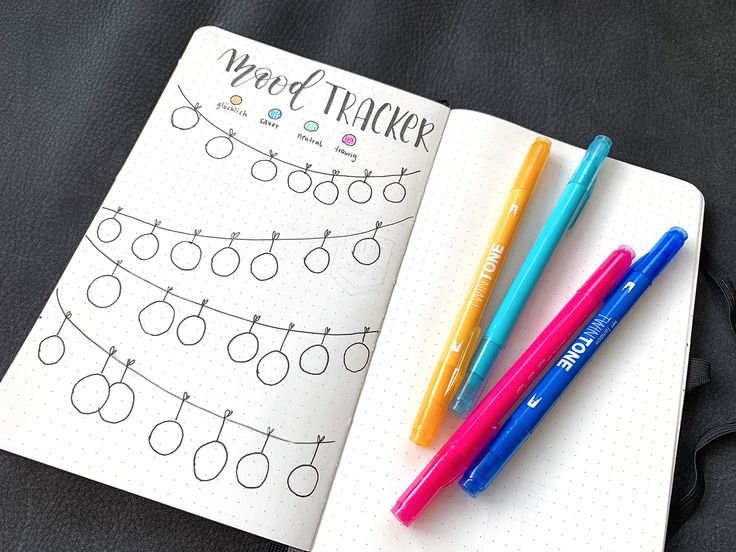 mood TRACKER
glücklich
sauer
neutral
traurig
TWINTONE
TWINTONE